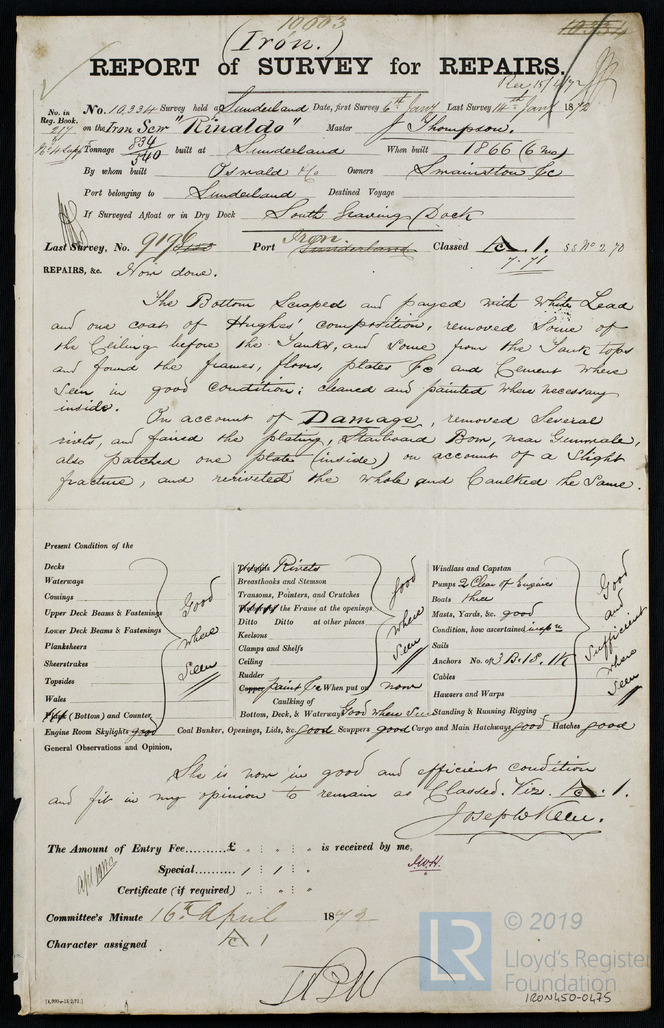 10003
10334
(Iron.)
REPORT of SURVEY for REPAIRS.
Rec 15/4/72
No. in Reg. Book. 217
No. 10,334 Survey held at Sunderland Date, first Survey 6th Jany Last Survey 14th Jany 1872
on the Iron Scw "Rinaldo" Master J Thompson.
Tonnage 834 / 540 built at Sunderland When built 1866 (6 mo)
By whom built Oswald & Co Owners Smainston &c
Port belonging to Sunderland Destined Voyage
If Surveyed Afloat or in Dry Dock South Graving Dock
Last Survey, No. 9196 Port Iron Sunderland Classed A 1. SS No 2 70
7.71
REPAIRS, &c. Now done.
The Bottom Scraped and payed with White Lead
and one coat of Hughes' composition, removed Some of
the Ceiling before the Tanks, and Some from the Tank tops
and found the frames, floors, plates &c and Cement where
Seen in good condition; cleaned and painted where necessary
inside.
On account of Damage, removed Several
rivets, and faired the plating, Starboard Bow, near Gunwale,
also patched one plate (inside) on account of a Slight
fracture, and reriveted the whole and Caulked the Same.
Present Condition of the
Decks
Waterways
Comings
Upper Deck Beams & Fastenings
Lower Deck Beams & Fastenings
Planksheers
Sheerstrakes
Topsides
Wales
Plank (Bottom) and Counter
Good where Seen
Engine Room Skylights good
Rivets
Breasthooks and Stemson
Transoms, Pointers, and Crutches
the Frame at the openings
Ditto Ditto at other places
Keelsons
Clamps and Shelfs
Ceiling
Rudder
Copper paint &c When put on now
Caulking of
Bottom, Deck, & Waterway Good where Seen
Good where Seen
Windlass and Capstan
Pumps 2 Clear of Engines
Boats three
Masts, Yards, &c. good
Condition, how ascertained inspn
Sails
Anchors No. of 3 B. 1S. 1K
Cables
Hawsers and Warps
Standing & Running Rigging
Good and Sufficient where Seen
Coal Bunker, Openings, Lids, &c. good Scuppers good Cargo and Main Hatchways good Hatches good
General Observations and Opinion,
She is now in good and efficient condition
and fit in my opinion to remain as Classed. Viz. A 1.
Joseph Keen.
The Amount of Entry Fee..........£ : : is received by me,
Special.......... 1 : 1 :
J.W.H.
Certificate (if required) : :
Committee's Minute 16th April 1872
Character assigned A 1
[4,000-13/2/71.]
LR
© 2019
Lloyd's Register
Foundation
IRON450-0475